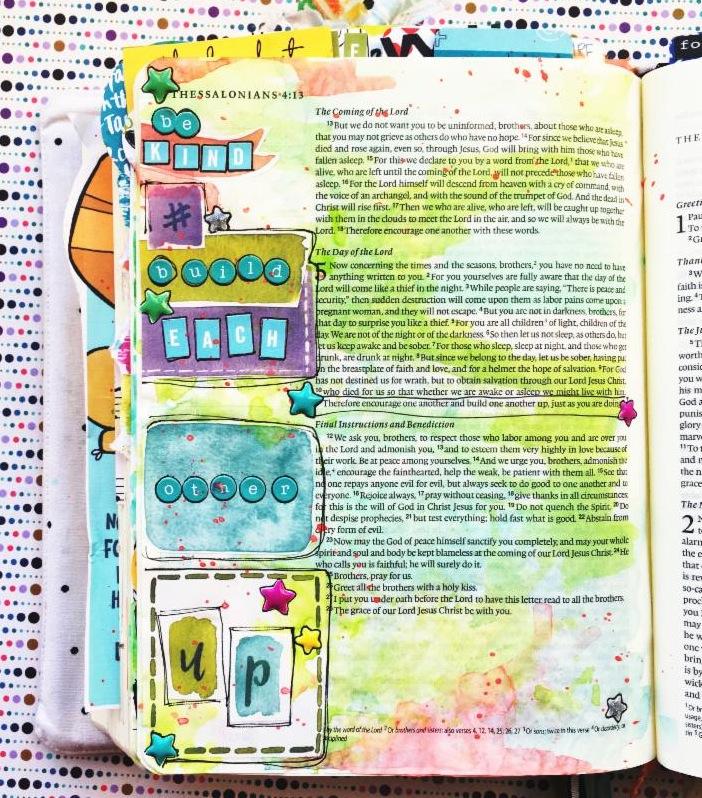 THESSALONIANS 4:13
be
KIND
#
build
EACH
other
up
The Coming of the Lord
13 But we do not want you to be uninformed, brothers, about those who are asleep,
that you may not grieve as others do who have no hope. 14 For since we believe that Jesus
died and rose again, even so, through Jesus, God will bring with him those who have
fallen asleep. 15 For this we declare to you by a word from the Lord,1 that we who are
alive, who are left until the coming of the Lord, will not precede those who have fallen
asleep. 16 For the Lord himself will descend from heaven with a cry of command, with
the voice of an archangel, and with the sound of the trumpet of God. And the dead in
Christ will rise first. 17 Then we who are alive, who are left, will be caught up together
with them in the clouds to meet the Lord in the air, and so we will always be with the
Lord. 18 Therefore encourage one another with these words.
The Day of the Lord
5 Now concerning the times and the seasons, brothers,2 you have no need to have
anything written to you. 2 For you yourselves are fully aware that the day of the
Lord will come like a thief in the night. 3 While people are saying, "There is peace and
security," then sudden destruction will come upon them as labor pains come upon a
pregnant woman, and they will not escape. 4 But you are not in darkness, brothers, for
that day to surprise you like a thief. 5 For you are all children3 of light, children of the
day. We are not of the night or of the darkness. 6 So then let us not sleep, as others do, but
let us keep awake and be sober. 7 For those who sleep, sleep at night, and those who get
drunk, are drunk at night. 8 But since we belong to the day, let us be sober, having put
on the breastplate of faith and love, and for a helmet the hope of salvation. 9 For God
has not destined us for wrath, but to obtain salvation through our Lord Jesus Christ,
10 who died for us so that whether we are awake or asleep we might live with him.
Therefore encourage one another and build one another up, just as you are doing.
Final Instructions and Benediction
12 We ask you, brothers, to respect those who labor among you and are over you
in the Lord and admonish you, 13 and to esteem them very highly in love because of
their work. Be at peace among yourselves. 14 And we urge you, brothers, admonish the
idle,4 encourage the fainthearted, help the weak, be patient with them all. 15 See that
no one repays anyone evil for evil, but always seek to do good to one another and to
everyone. 16 Rejoice always, 17 pray without ceasing, 18 give thanks in all circumstances;
for this is the will of God in Christ Jesus for you. 19 Do not quench the Spirit. 20 Do
not despise prophecies, 21 but test everything; hold fast what is good. 22 Abstain from
every form of evil.
23 Now may the God of peace himself sanctify you completely, and may your whole
spirit and soul and body be kept blameless at the coming of our Lord Jesus Christ. 24 He
who calls you is faithful; he will surely do it.
25 Brothers, pray for us.
26 Greet all the brothers with a holy kiss.
27 I put you under oath before the Lord to have this letter read to all the brothers.
28 The grace of our Lord Jesus Christ be with you.
by the word of the Lord 2 Or brothers and sisters; also verses 4, 12, 14, 25, 26, 27 3 Or sons; twice in this verse 4 Or disorderly, or